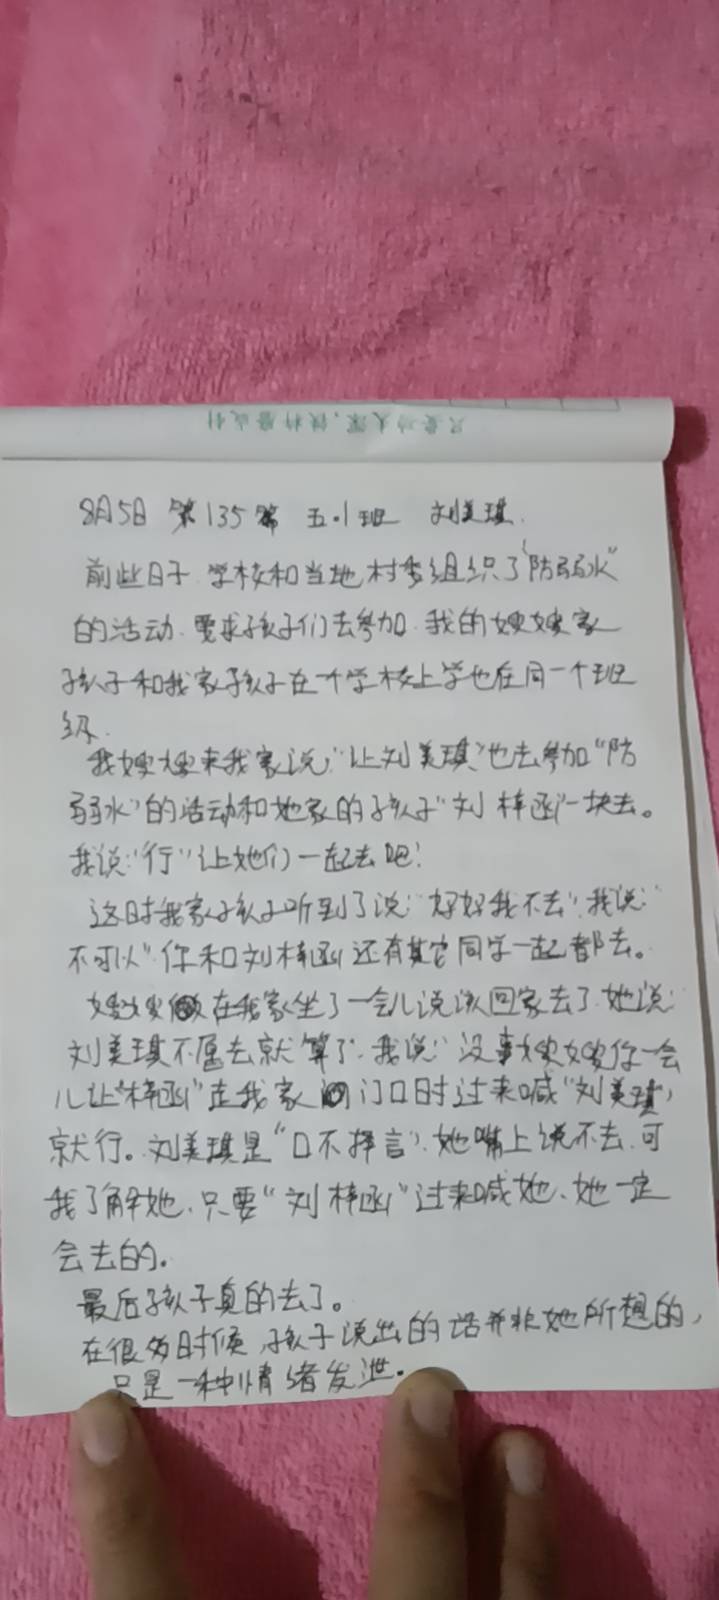 只要功夫深，铁杵磨成针
8月5日 第135篇 五·1班 刘美琪.
前些日子.学校和当地村委组织了“防溺水”
的活动.要求孩子们去参加.我的嫂嫂家
孩子和我家孩子在一个学校上学也在同一个班
级.
我嫂嫂来我家说:“让刘美琪”也去参加“防
溺水”的活动和她家的孩子“刘梓函”一块去。
我说:“行”让她们一起去吧!
这时我家孩子听到了说:“好好我不去”.我说:“
不可以”你和刘梓函还有其它同学一起都去。
嫂嫂在我家坐了一会儿说该回家去了.她说:
刘美琪不愿去就算了.我说:“没事嫂嫂你一会
儿让“梓函”走我家门口时过来喊“刘美琪”
就行。刘美琪是“口不择言”.她嘴上说不去.可
我了解她.只要“刘梓函”过来喊她、她一定
会去的.
最后孩子真的去了。
在很多时候,孩子说出的话并非她所想的,
只是一种情绪发泄.